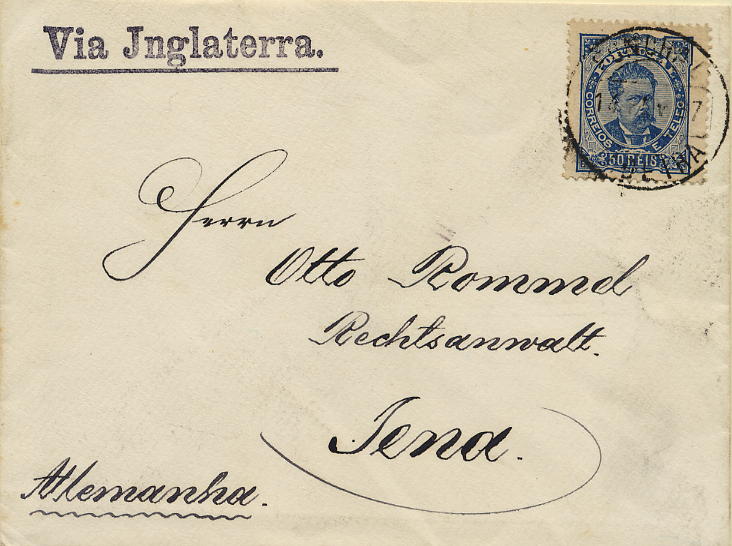 Via Jnglaterra.
PORTUGAL
CORREIOS E TELEG
50 REIS
Herrn
Otto Rommel
Rechtsanwalt.
Jena.
Allemanha.